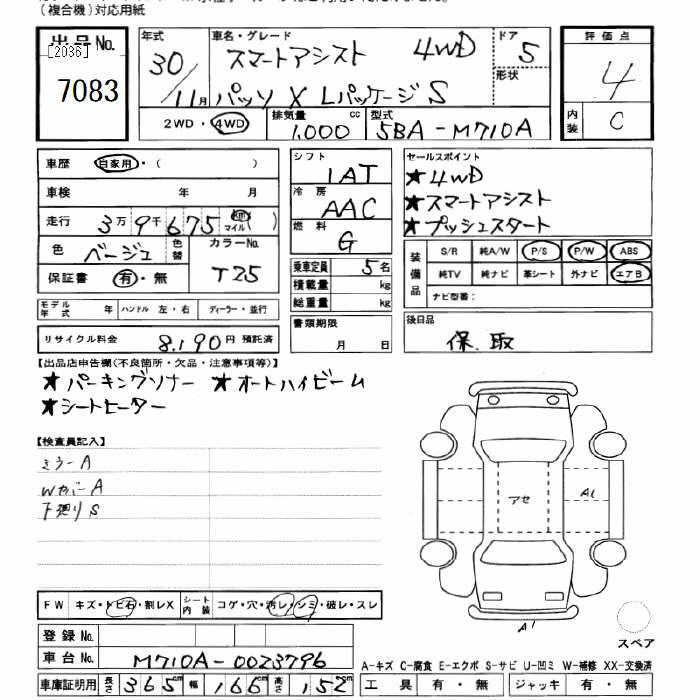 (複合機)対応用紙
出品No.
[2036]
7083
年式 30 / 11月
車名・グレード スマートアシスト 4WD
パッソ X Lパッケージ S
ドア 5
形状
評価点 4
内装 C
2WD・4WD
排気量 1,000 cc
型式 5BA-M710A
車歴 自家用・( )
車検 年 月
走行 3万9千675 km マイル ( )
色 ベージュ 色替
カラーNo. T25
保証書 有・無
モデル年式 年 ハンドル 左・右 ディーラー・並行
リサイクル料金 8,190円 預託済
シフト 1AT
冷房 AAC
燃料 G
乗車定員 5名
積載量 kg
総重量 kg
書類期限 月 日
セールスポイント
★4WD
★スマートアシスト
★プッシュスタート
装備品 S/R 純A/W P/S P/W ABS
純TV 純ナビ 革シート 外ナビ エアB
ナビ型番:
後日品
保.取
【出品店申告欄(不良箇所・欠品・注意事項等)】
★パーキングソナー ★オートハイビーム
★シートヒーター
【検査員記入】
ミラーA
WカバーA
下廻りS
アセ
A1
A1
スペア
FW キズ・トビ石・割レX シート内装 コゲ・穴・汚レ・シミ・破レ・スレ
登録No.
車台No. M710A-0023796
車庫証明用 長さ 365cm 幅 166cm 高さ 152cm
A-キズ C-腐食 E-エクボ S-サビ U-凹ミ W-補修 XX-交換済
工具 有・無 ジャッキ 有・無